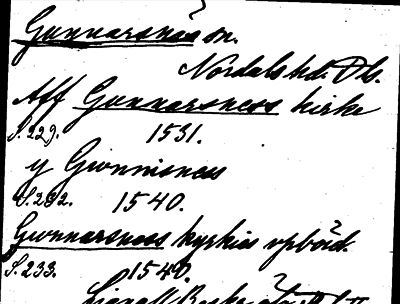 Gunnarsnäs sn.
Nordals hd. Ds.
Aff Gunnarsness kirke
S. 229. 1531.
y Gwnnisness
S. 232. 1540.
Gwnnarsness kyrkies vpbörd.
S. 233. 1540.